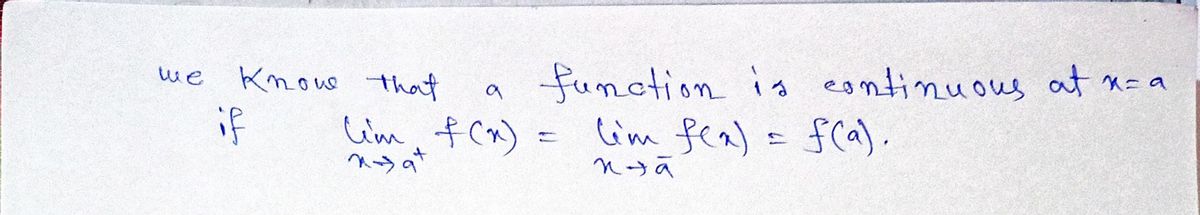 we know that a function is continuous at x=a
if lim x→a⁺ f(x) = lim x→a⁻ f(x) = f(a).